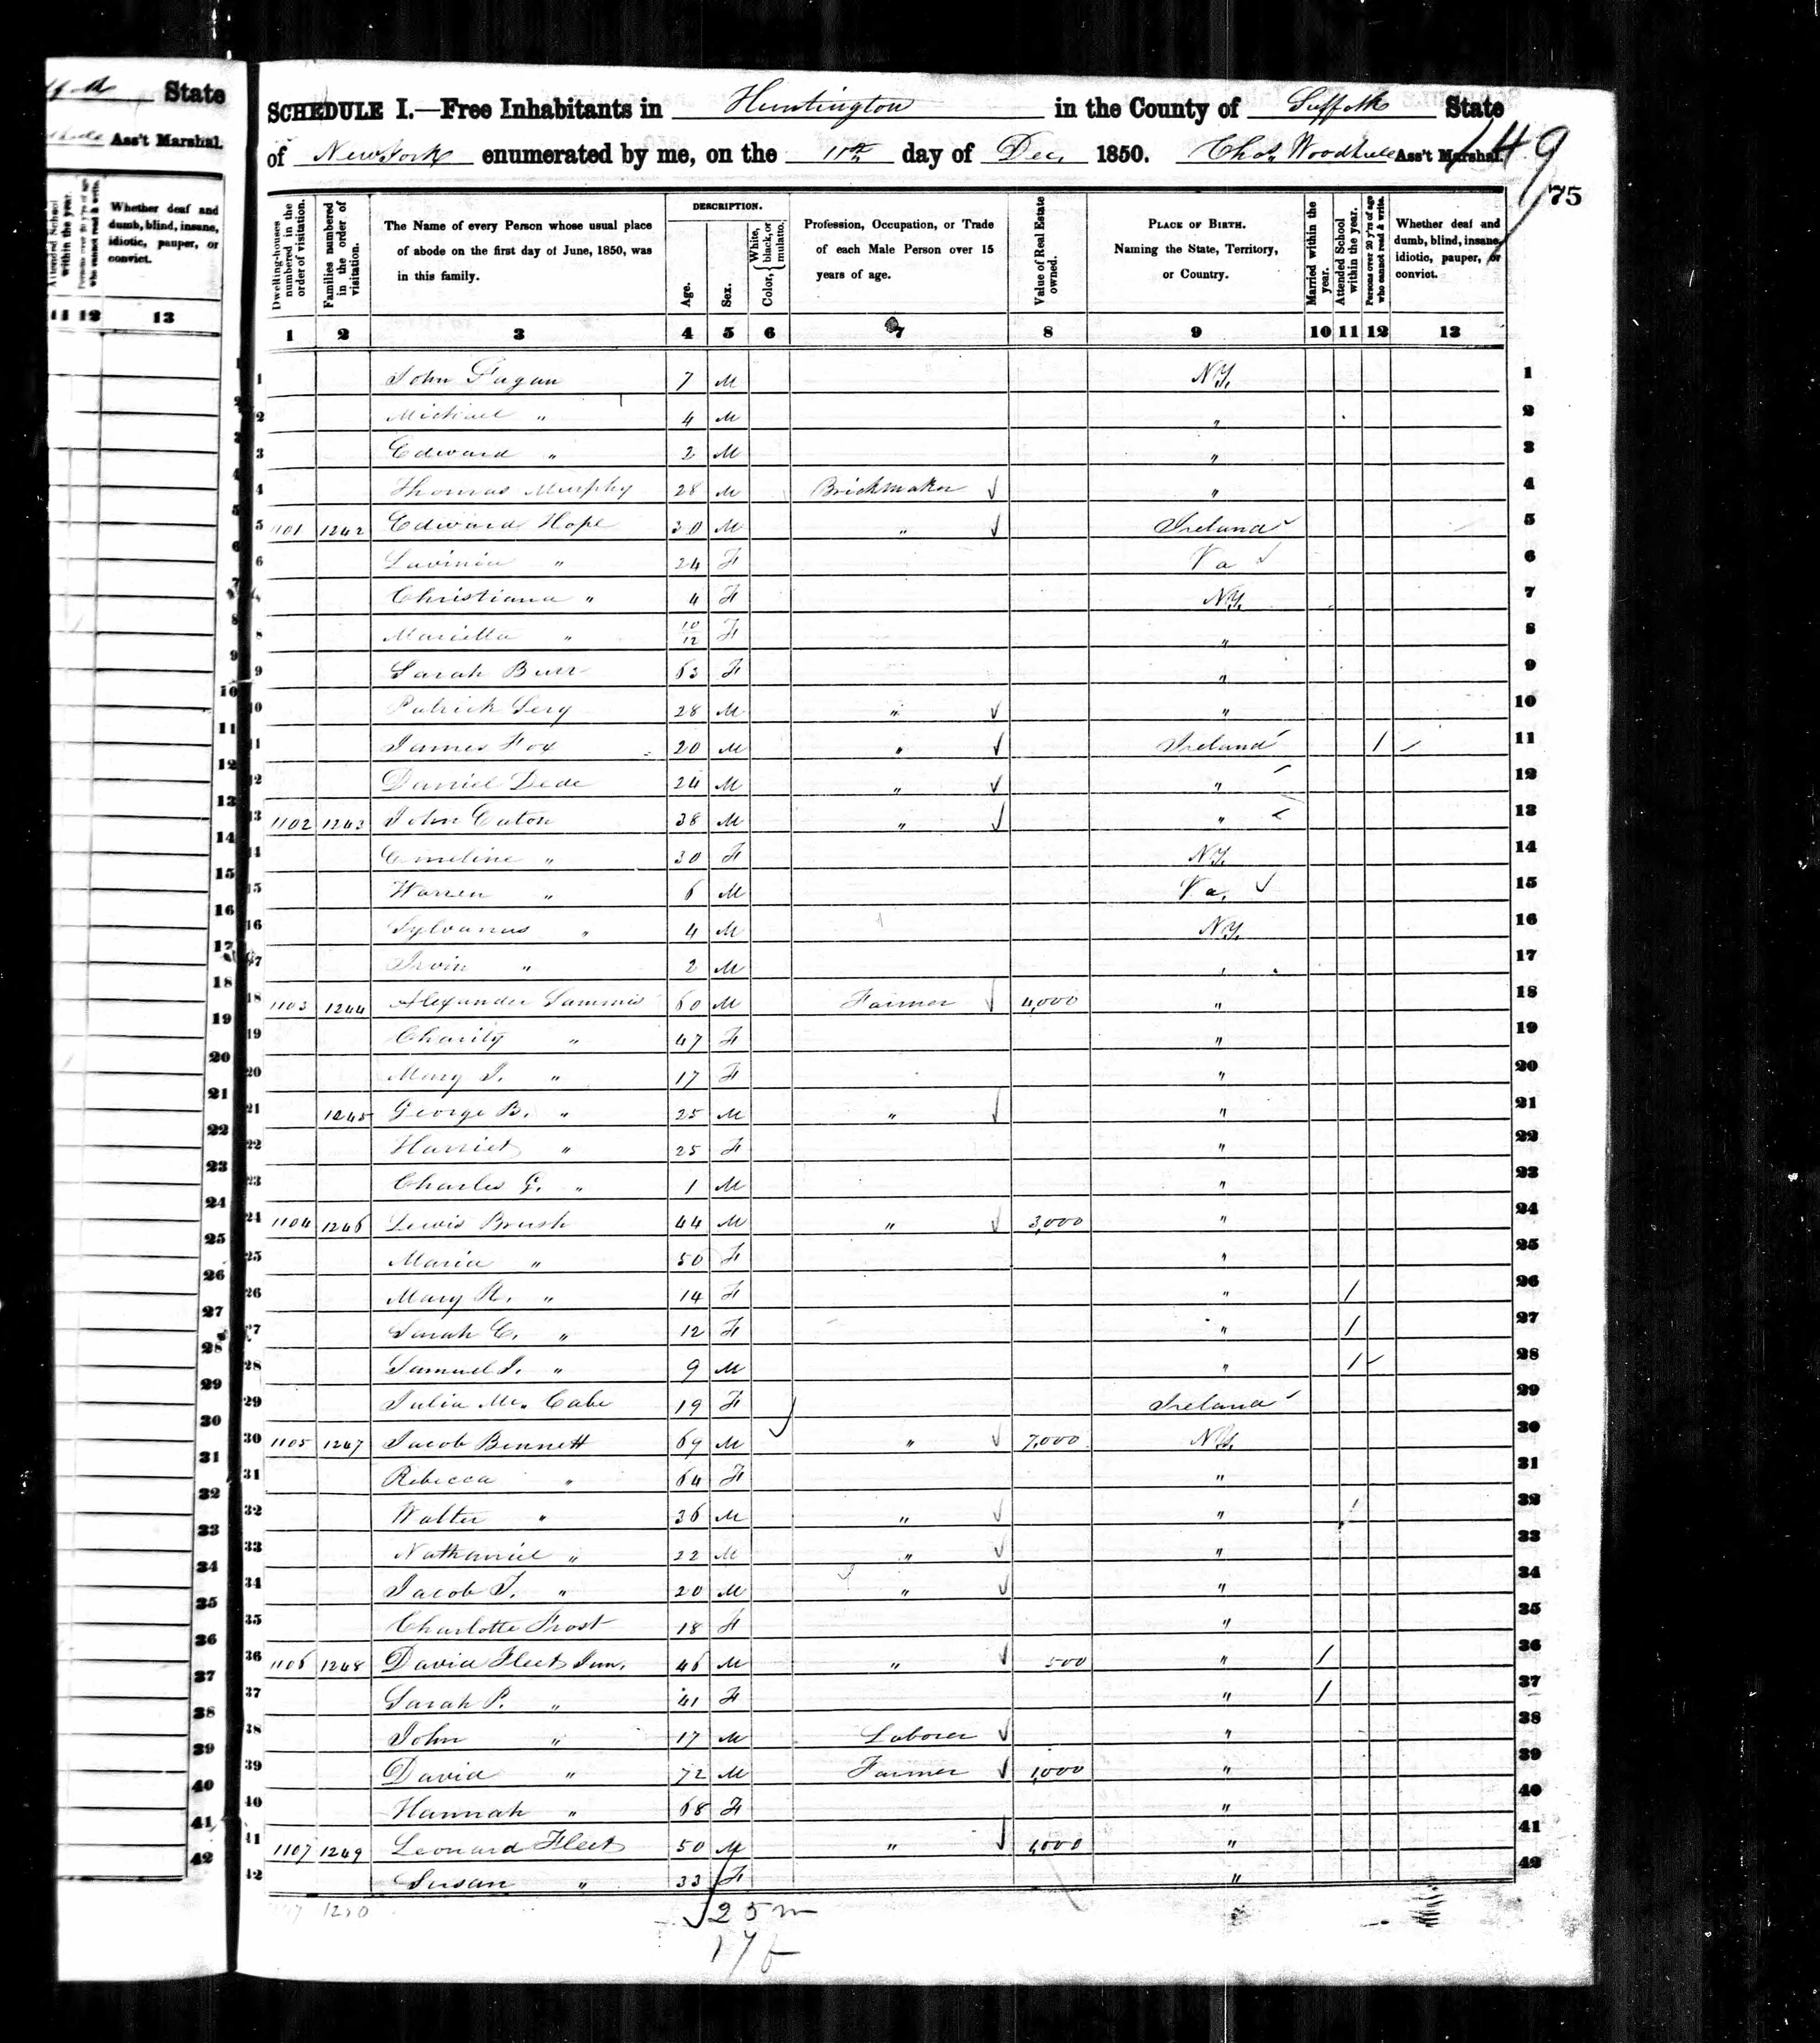 State
Ass't Marshal.
Whether deaf and
dumb, blind, insane,
idiotic, pauper, or
convict.
11 12 13
SCHEDULE I.—Free Inhabitants in Huntington in the County of Suffolk State
of New York enumerated by me, on the 11th day of Dec, 1850. Chas. Woodhull Ass't Marshal.
149
75
Dwelling-houses numbered in the order of visitation.
Families numbered in the order of visitation.
The Name of every Person whose usual place of abode on the first day of June, 1850, was in this family.
DESCRIPTION.
Age.
Sex.
Color, { White, black, or mulatto.
Profession, Occupation, or Trade of each Male Person over 15 years of age.
Value of Real Estate owned.
PLACE OF BIRTH. Naming the State, Territory, or Country.
Married within the year.
Attended School within the year.
Persons over 20 y'rs of age who cannot read & write.
Whether deaf and dumb, blind, insane, idiotic, pauper, or convict.
1 2 3 4 5 6 7 8 9 10 11 12 13
1 John Fagan 7 M N.Y. 1
2 Michael " 4 M " 2
3 Edward " 2 M " 3
4 Thomas Murphy 28 M Brickmaker " 4
5 1101 1242 Edward Hope 30 M " Ireland 5
6 Lavinia " 24 F Va 6
7 Christiana " 4 F N.Y. 7
8 Marietta " 10/12 F " 8
9 Sarah Burr 63 F " 9
10 Patrick 28 M " " 10
11 James Fox 20 M " Ireland 1 11
12 Daniel Dede 24 M " " 12
13 1102 1243 John Eaton 38 M " " 13
14 Emeline " 30 F N.Y. 14
15 Warren " 6 M Va. 15
16 Sylvanus " 4 M N.Y. 16
17 Irvin " 2 M " 17
18 1103 1244 Alexander Sammis 60 M Farmer 4,000 " 18
19 Charity " 47 F " 19
20 Mary J. " 17 F " 20
21 1245 George B. " 25 M " " 21
22 Harriet " 25 F " 22
23 Charles G. " 1 M " 23
24 1104 1246 Lewis Brush 44 M " 3,000 " 24
25 Maria " 50 F " 25
26 Mary R. " 14 F " 1 26
27 Sarah C. " 12 F " 1 27
28 Samuel J. " 9 M " 1 28
29 Julia Mc. Cabe 19 F Ireland 29
30 1105 1247 Jacob Bennett 69 M " 7,000 N.Y. 30
31 Rebecca " 64 F " 31
32 Walter " 36 M " " 32
33 Nathaniel " 22 M " " 33
34 Jacob T. " 20 M " " 34
35 Charlotte Frost 18 F " 35
36 1106 1248 David Fleet Jun. 46 M " 500 " 1 36
37 Sarah P. " 41 F " 1 37
38 John " 17 M Laborer " 38
39 David " 72 M Farmer 1,000 " 39
40 Hannah " 68 F " 40
41 1107 1249 Leonard Fleet 50 M " 1,000 " 41
42 Susan " 33 F " 42
1250
25 m
17 f